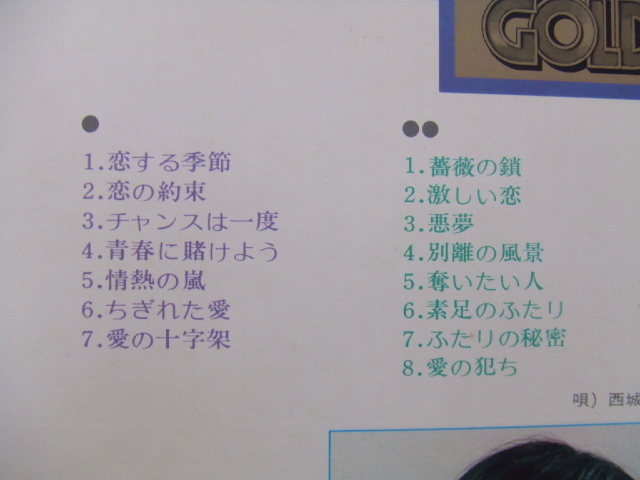 GOLD
●
1.恋する季節
2.恋の約束
3.チャンスは一度
4.青春に賭けよう
5.情熱の嵐
6.ちぎれた愛
7.愛の十字架
●●
1.薔薇の鎖
2.激しい恋
3.悪夢
4.別離の風景
5.奪いたい人
6.素足のふたり
7.ふたりの秘密
8.愛の犯ち
唄)西城